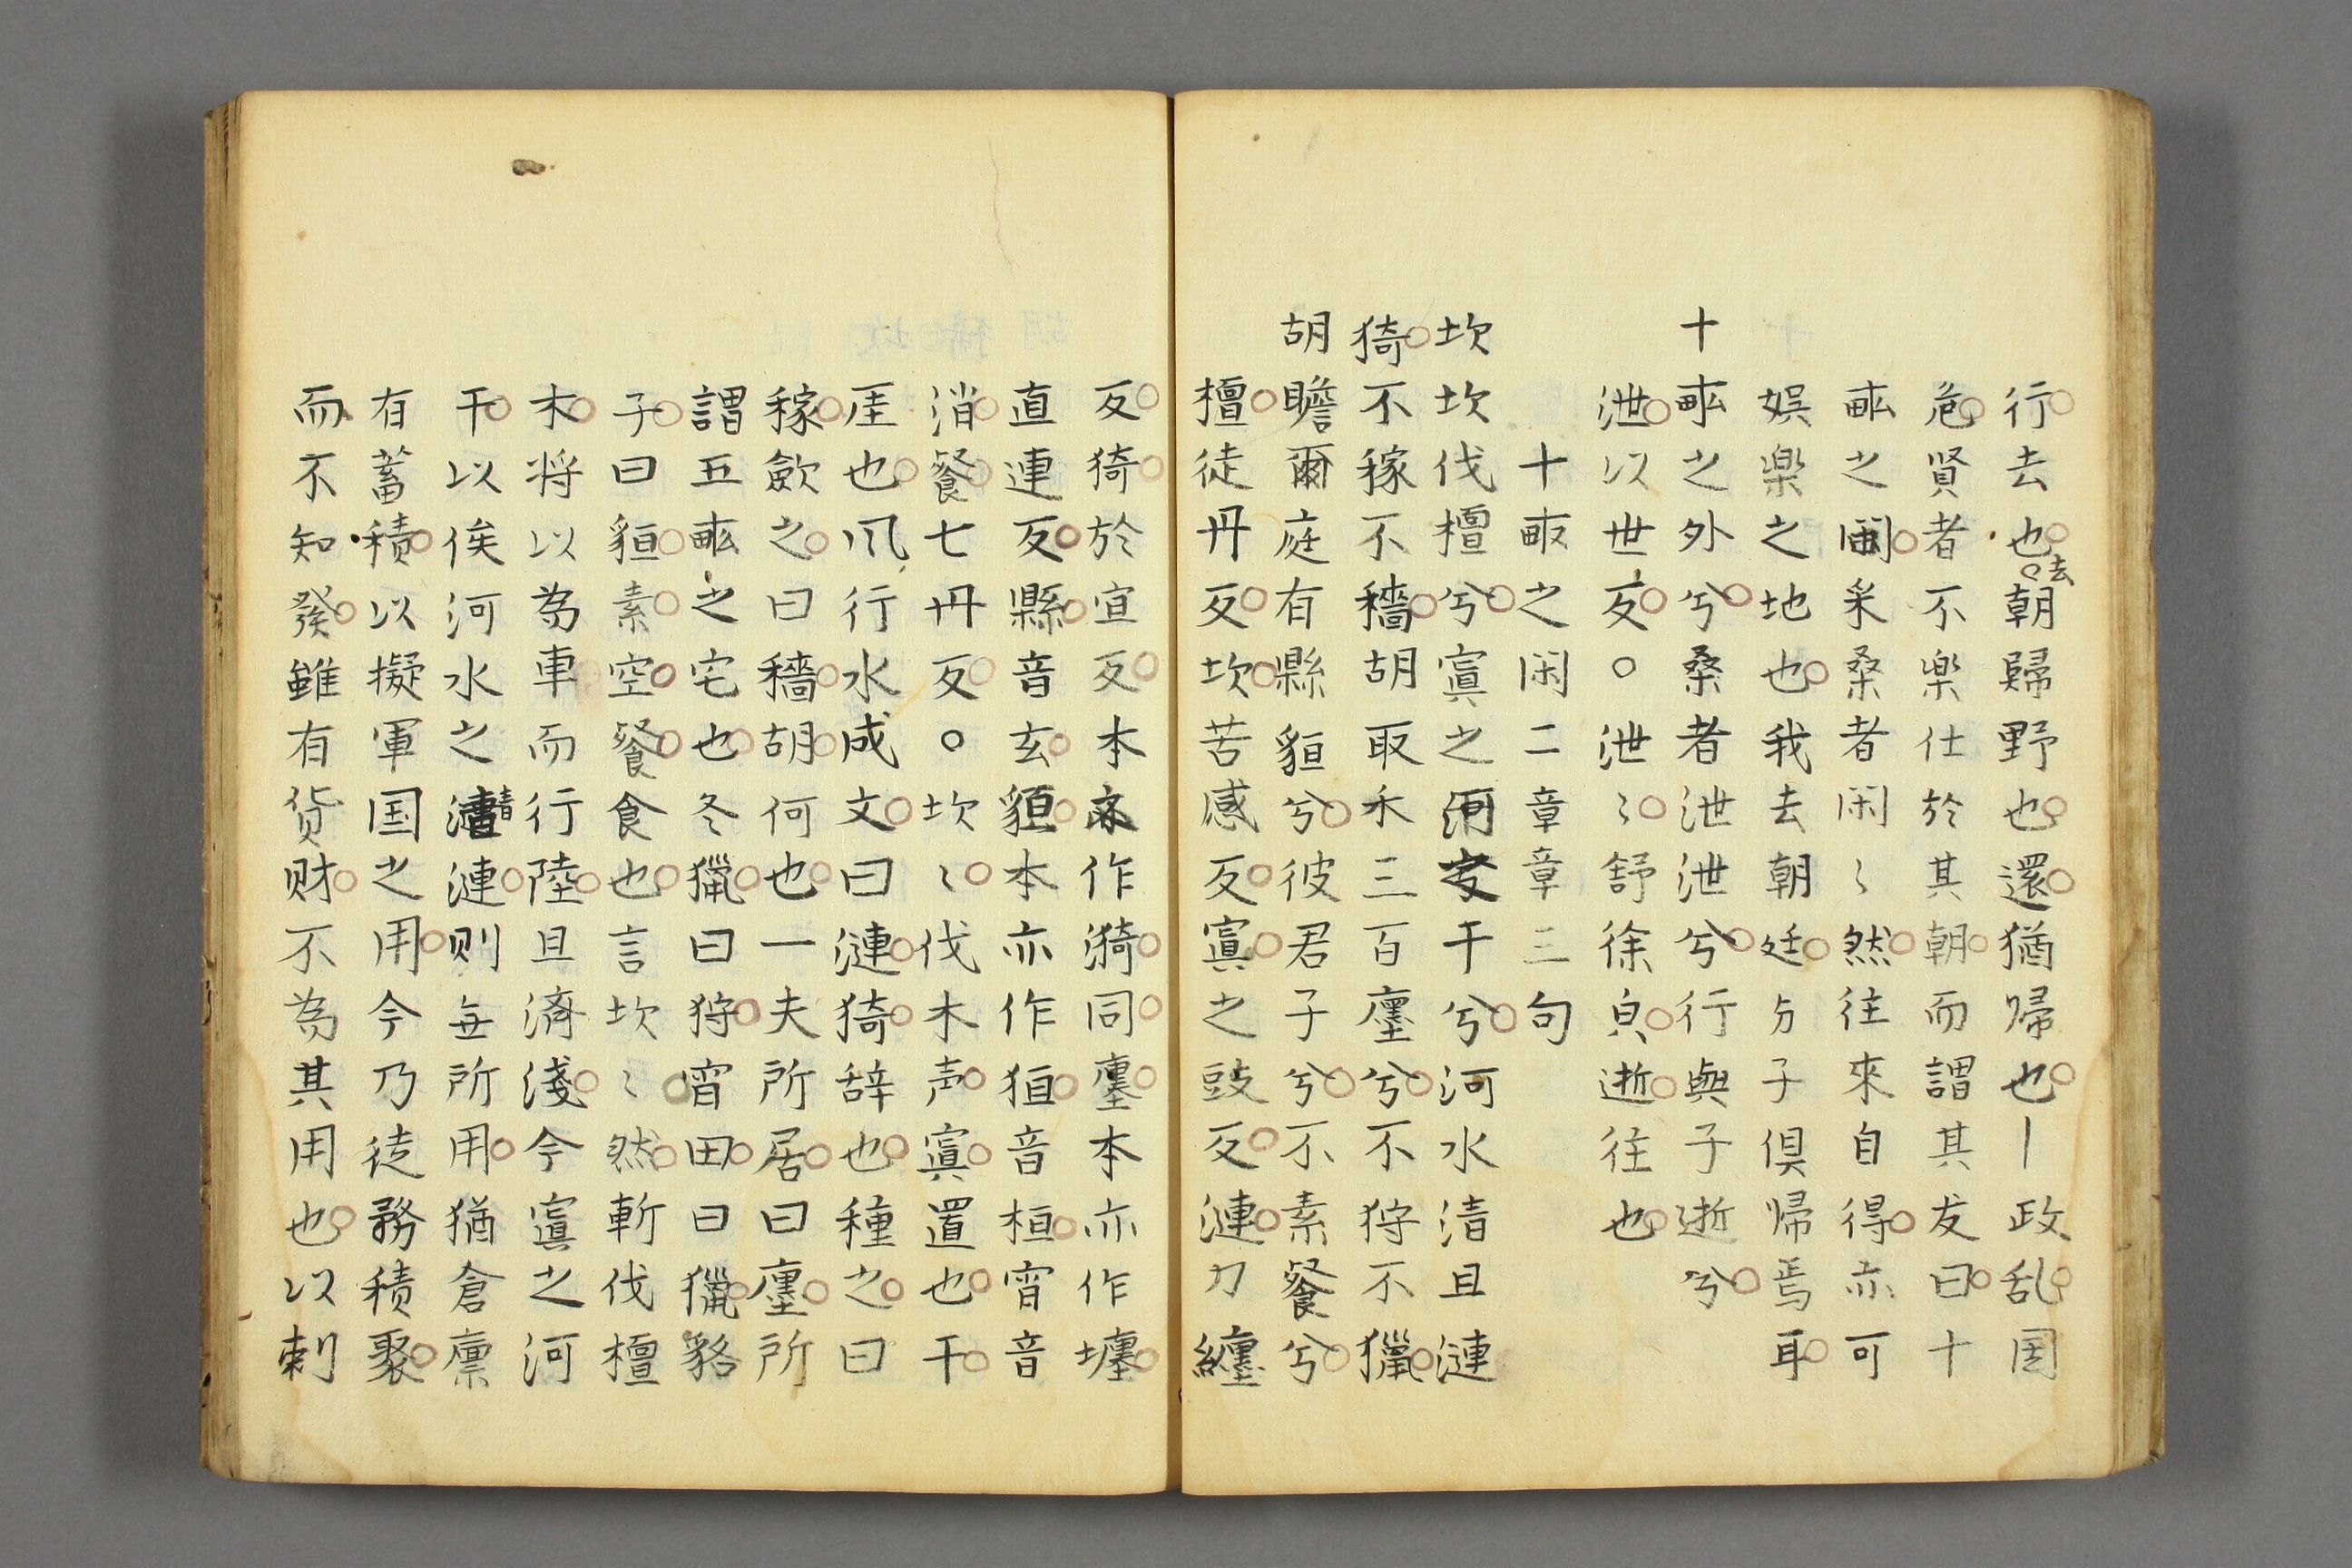 行去也去朝歸野也還猶帰也｜政乱国
危賢者不楽仕於其朝而謂其友曰十
畝之間采桑者闲〻然往來自得亦可
娯楽之地也我去朝廷与子俱帰焉耳
十畝之外兮桑者泄泄兮行與子逝兮
泄以世反○泄〻舒徐皃逝往也
十畝之闲二章章三句
坎坎伐檀兮寘之河干兮河水清且漣
猗不稼不穡胡取禾三百廛兮不狩不獵
胡瞻爾庭有縣貆兮彼君子兮不素餐兮
檀徒丹反坎苦感反寘之豉反漣力纏
反猗於宜反本亦作漪同廛本亦作㙻
直連反縣音玄貆本亦作狟音桓宵音
消餐七丹反○坎〻伐木声寘置也干
厓也风行水成文曰漣猗辞也種之曰
稼斂之曰穡胡何也一夫所居曰廛所
謂五畝之宅也冬獵曰狩宵田曰獵貉
子曰貆素空餐食也言坎〻然斬伐檀
木将以為車而行陸且済淺今寘之河
干以俟河水之清漣则無所用猶倉廪
有蓄積以擬軍国之用今乃徒務積聚
而不知發雖有货财不為其用也以刺